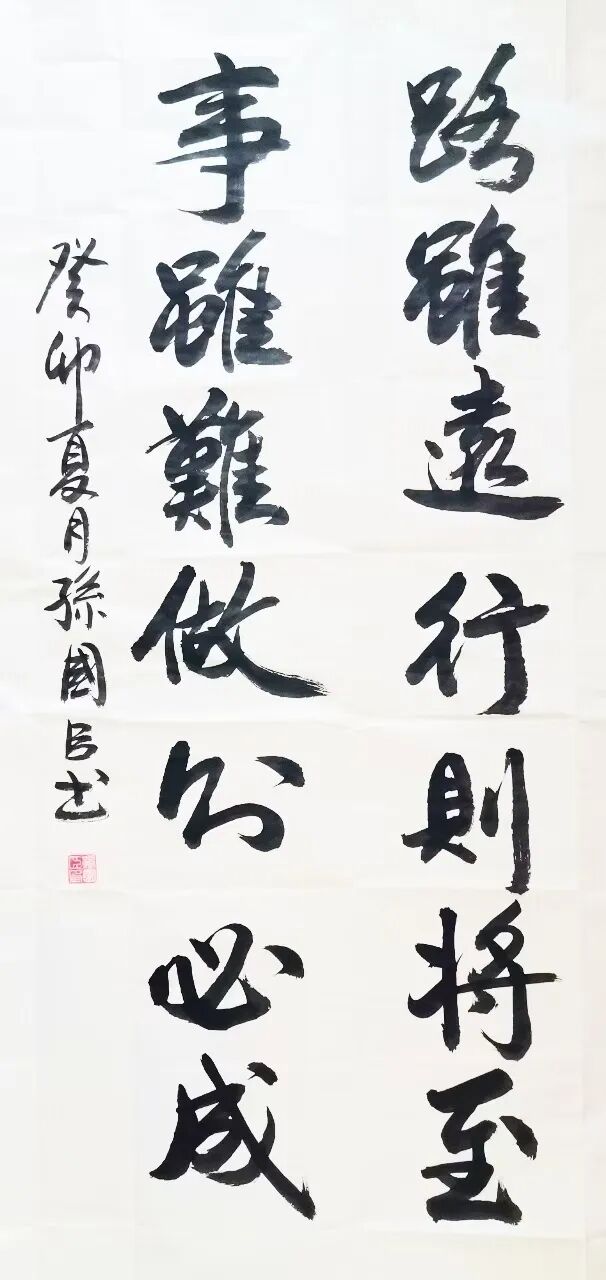 路雖遠行則將至
事雖難做則必成
癸卯夏月孫國臣书